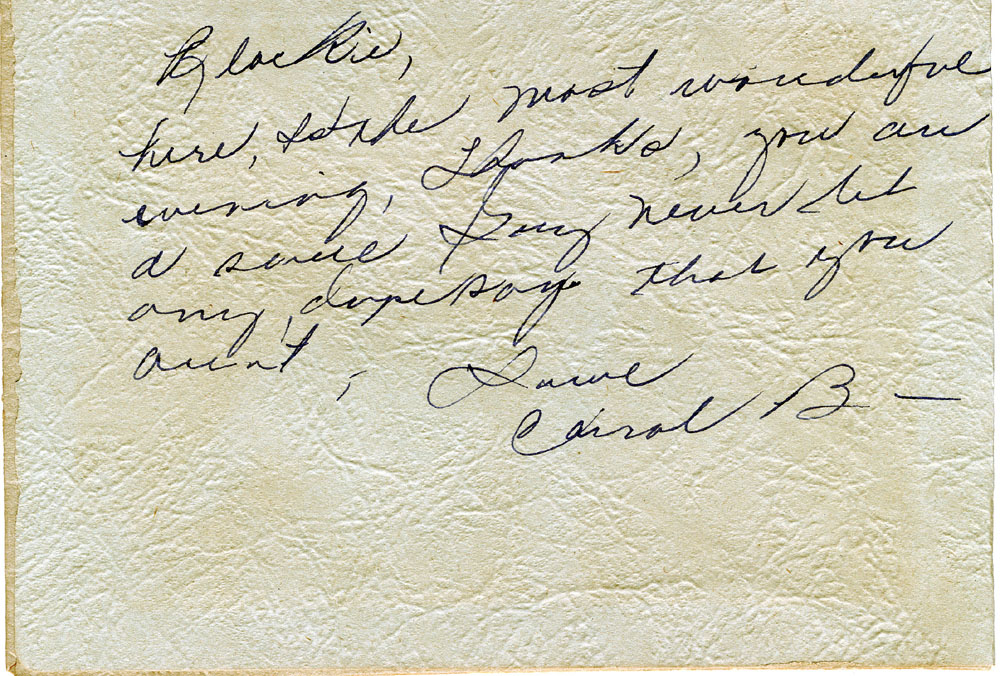 Blackie,
here, to the most wonderful
evening, Thanks, you are
a swell Guy never let
any dope say that you
arent,
Love
Carol B —